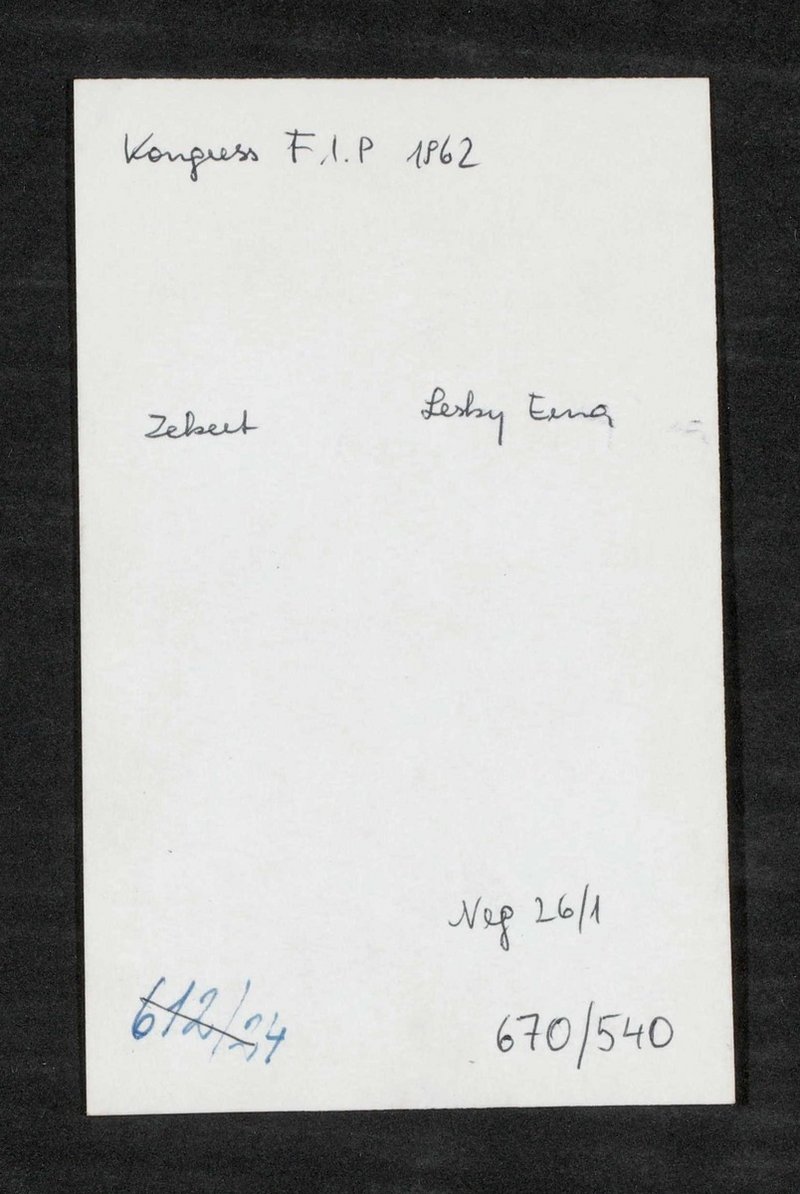 Kongress F.I.P 1962
Zekert Lesky Erna
Neg 26/1
612/24
670/540